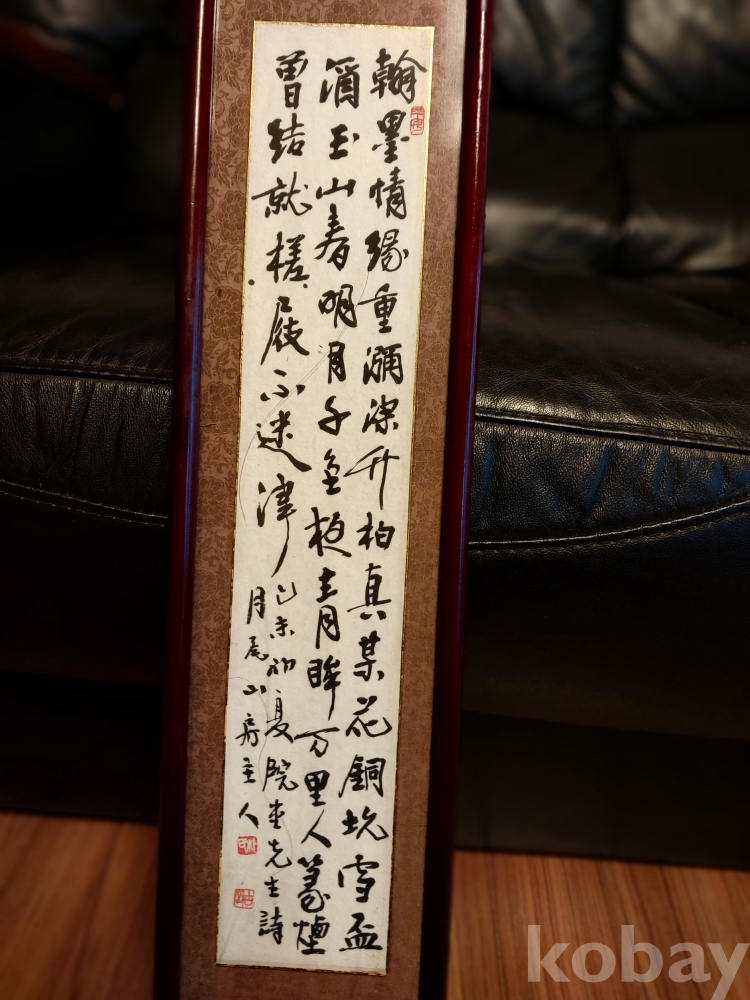 翰墨情緣重瀰深竹柏真某花銅坑雪盃
酒玉山春明月千金梗青眸万里人篆煙
曾結就槎屐不迷津己未初夏院堂先生詩
月尾山房主人
kobay